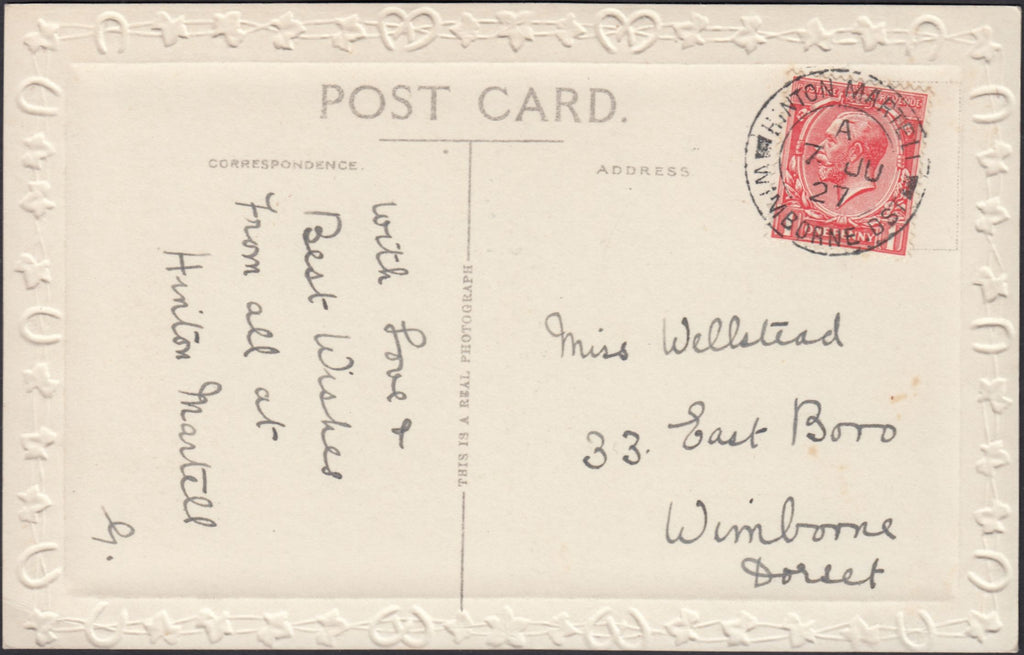 POST CARD.
CORRESPONDENCE.
ADDRESS
THIS IS A REAL PHOTOGRAPH
with love &
Best Wishes
From all at
Hinton Martell
G.
Miss Wellstead
33. East Boro
Wimborne
Dorset
HINTON MARTELL
A
7 JU
27
WIMBORNE